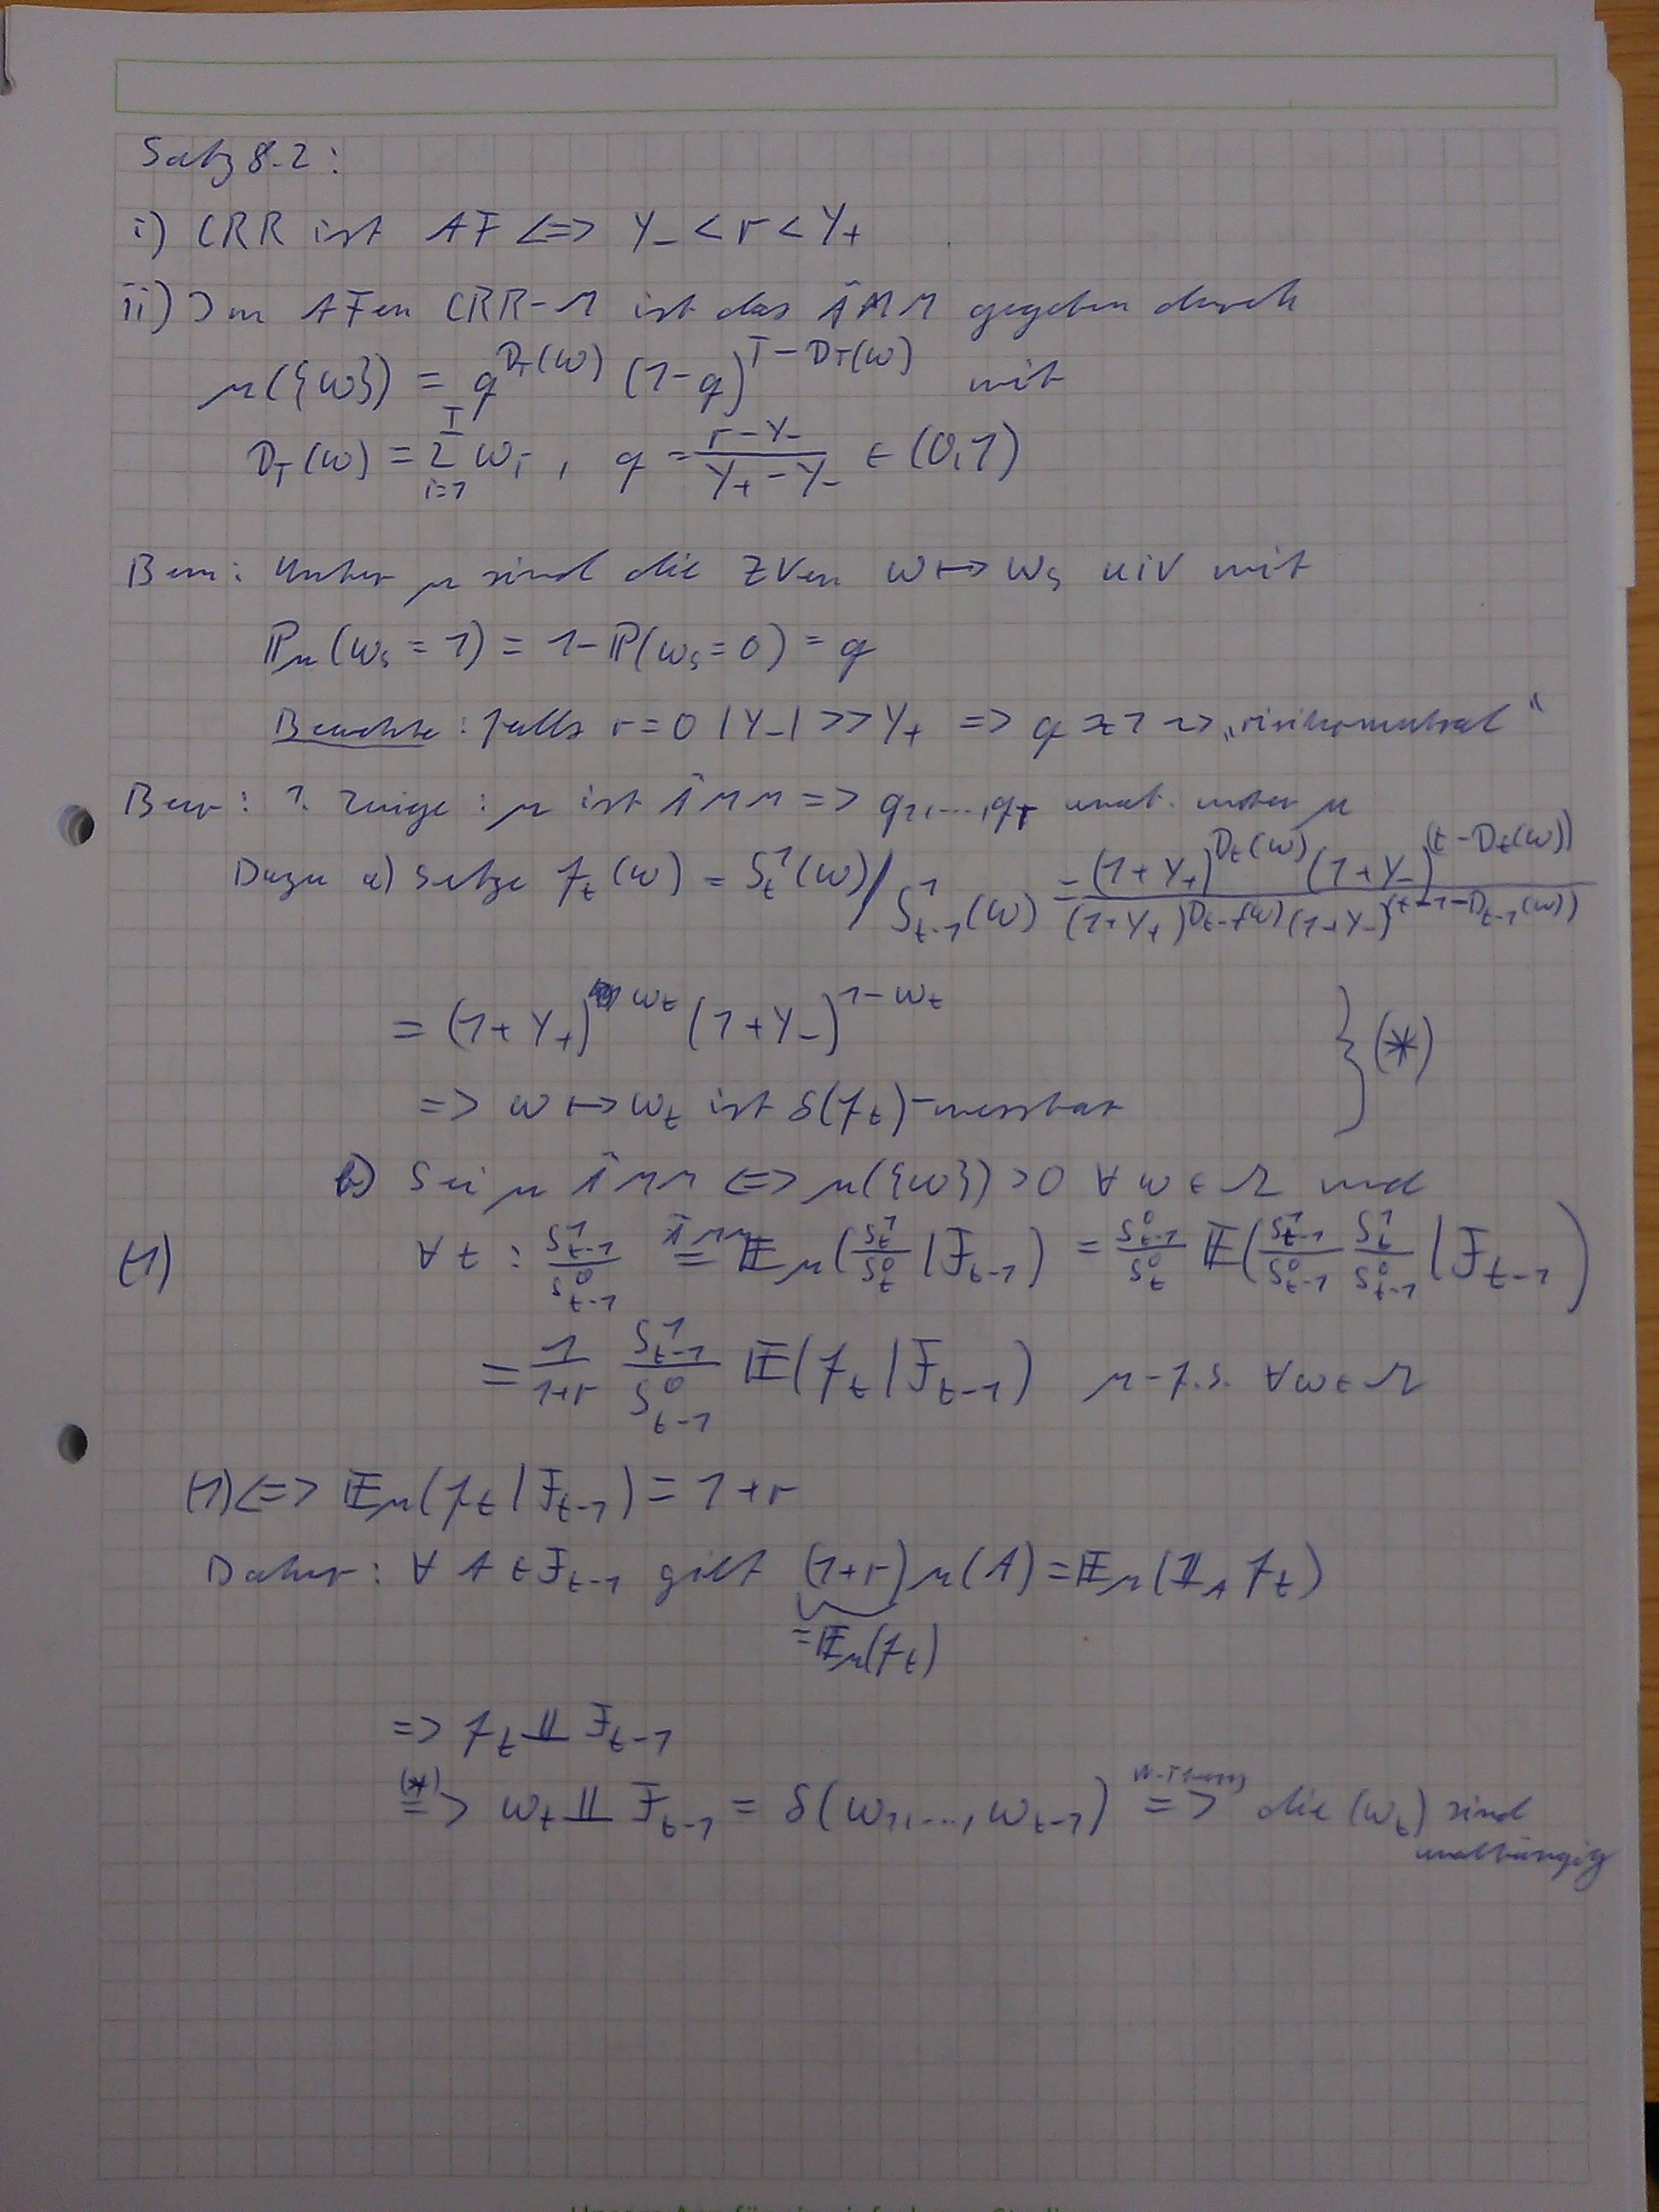 Satz 8.2:
i) CRR ist AF <=> Y_- < r < Y_+
ii) Im AFen CRR-M ist das ÄMM gegeben durch
μ({ω}) = q^{D_T(ω)} (1-q)^{T-D_T(ω)} mit
D_T(ω) = Σ_{i=1}^{T} ω_i , q = \frac{r-Y_-}{Y_+ - Y_-} ∈ (0,1)
Bem: Unter μ sind die ZVen ω ↦ ω_s uiv mit
ℙ_μ(ω_s = 1) = 1-ℙ(ω_s = 0) = q
Beachte: falls r=0 |Y_-| >> Y_+ => q ≈ 1 ⇝ „risikoneutral“
Bew: 1. Zeige: μ ist ÄMM => q_1,...,q_T unab. unter μ
Dazu a) Setze f_t(ω) = S_t^1(ω) / S_{t-1}^1(ω) = \frac{(1+Y_+)^{D_t(ω)} (1+Y_-)^{(t-D_t(ω))}}{(1+Y_+)^{D_{t-1}(ω)} (1+Y_-)^{(t-1-D_{t-1}(ω))}}
= (1+Y_+)^{ω_t} (1+Y_-)^{1-ω_t} } (*)
=> ω ↦ ω_t ist δ(f_t)-messbar
b) Sei μ ÄMM <=> μ({ω}) > 0 ∀ ω ∈ Ω und
(1) ∀ t : \frac{S_{t-1}^1}{S_{t-1}^0} \overset{ÄMM}{=} 𝔼_μ(\frac{S_t^1}{S_t^0} | F_{t-1}) = \frac{S_{t-1}^0}{S_t^0} 𝔼(\frac{S_{t-1}^1}{S_{t-1}^0} \frac{S_t^1}{S_{t-1}^0} | F_{t-1})
= \frac{1}{1+r} \frac{S_{t-1}^1}{S_{t-1}^0} 𝔼(f_t | F_{t-1}) μ-f.s. ∀ω ∈ Ω
(1) <=> 𝔼_μ(f_t | F_{t-1}) = 1+r
Daher: ∀ A ∈ F_{t-1} gilt (1+r) μ(A) = 𝔼_μ(𝟙_A f_t)
= 𝔼_μ(f_t)
=> f_t ⫫ F_{t-1}
\overset{(*)}{=>} ω_t ⫫ F_{t-1} = δ(ω_1,...,ω_{t-1}) \overset{W-Theorie}{=>} die (ω_t) sind
unabhängig